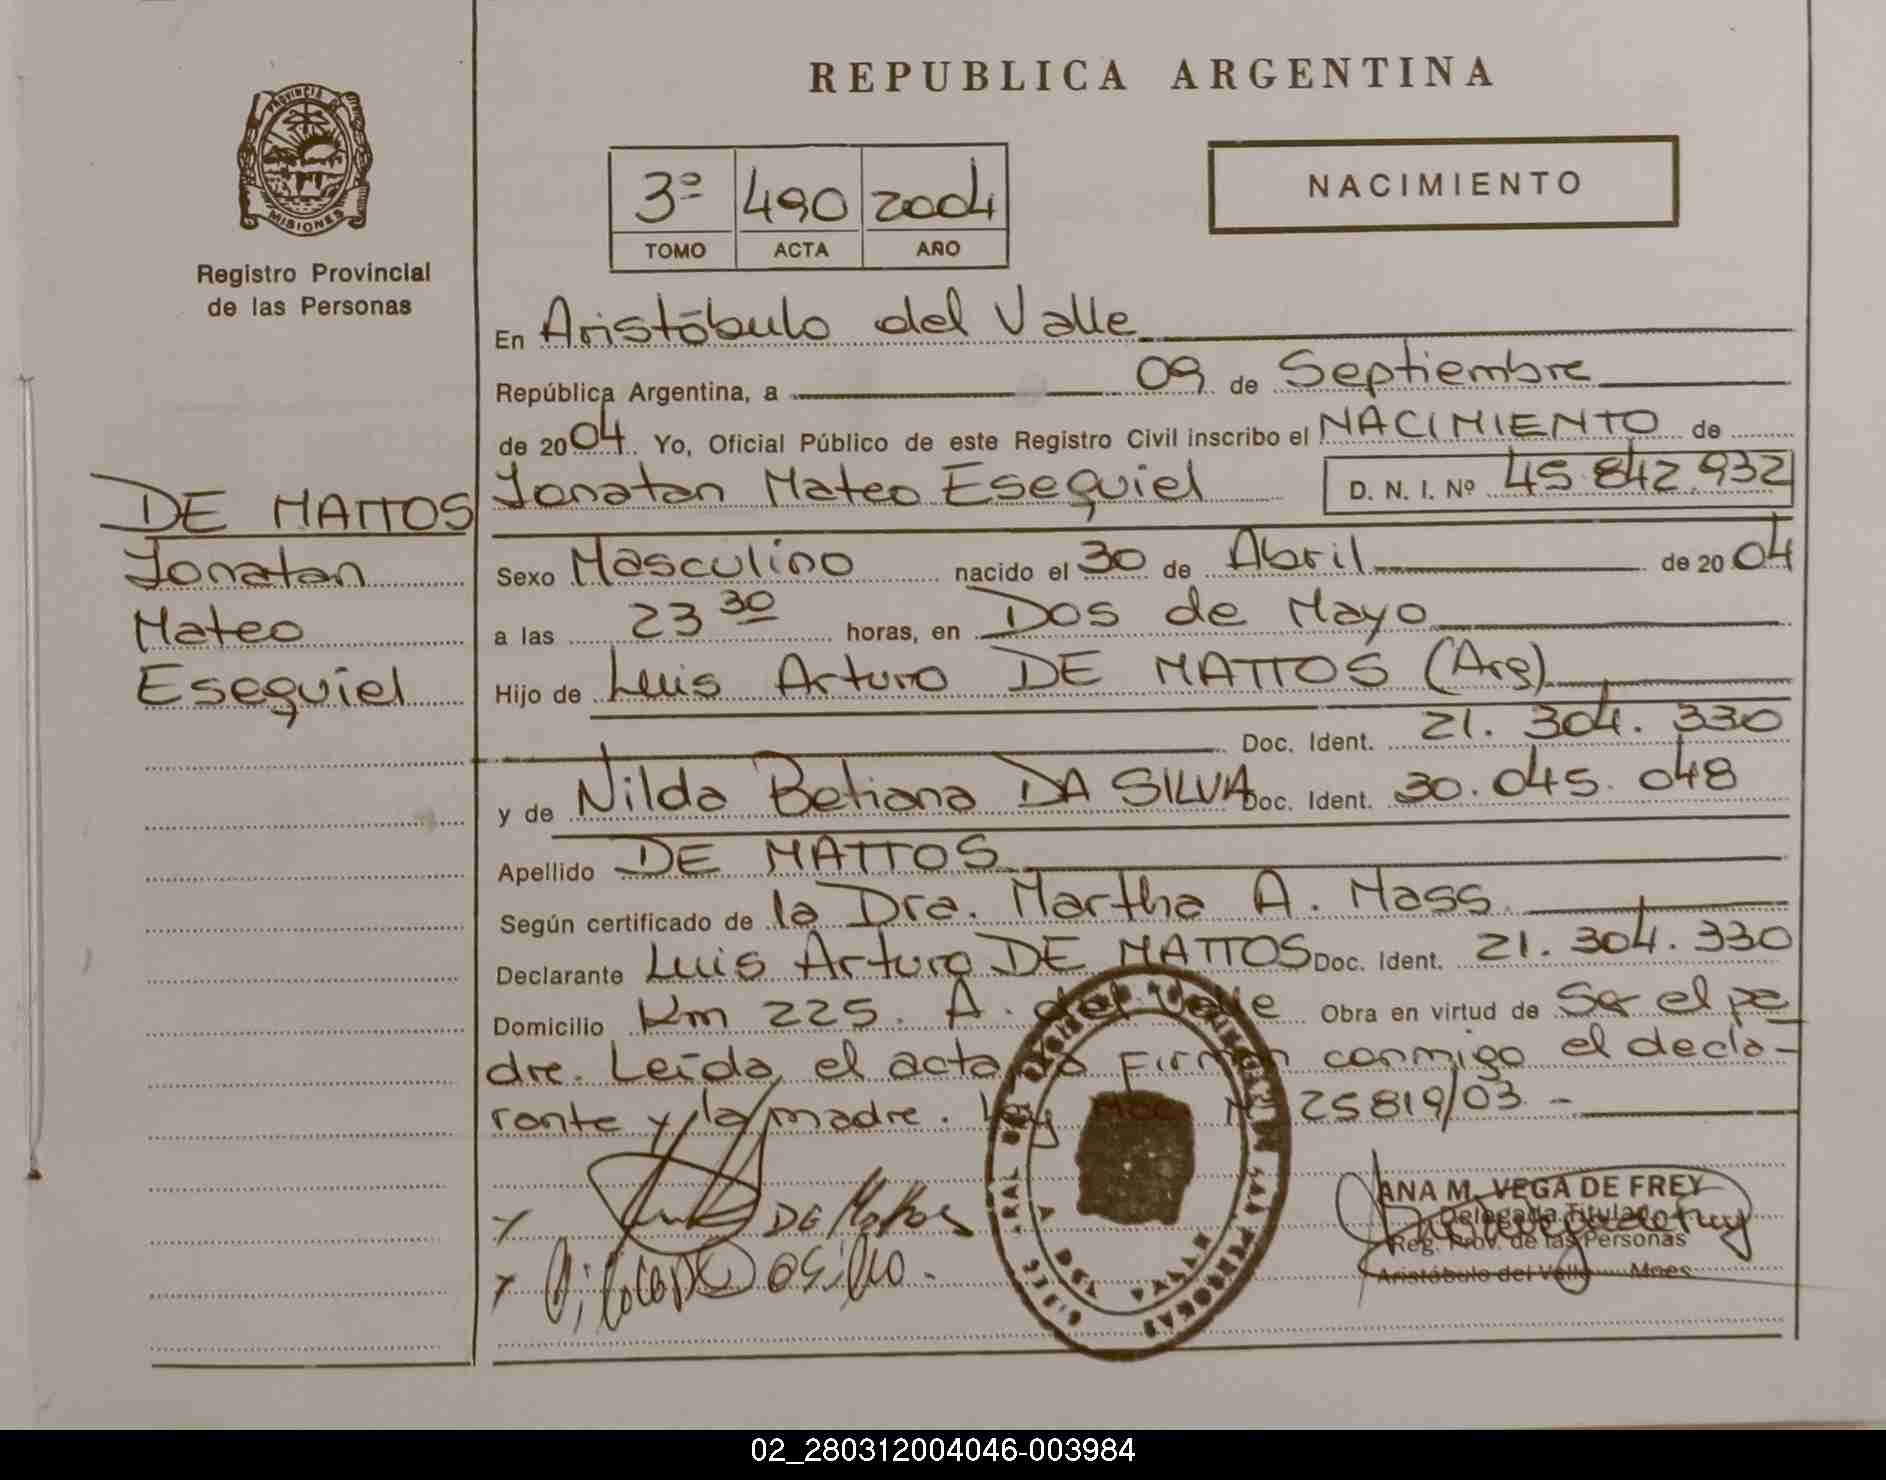 REPUBLICA ARGENTINA
PROVINCIA DE
MISIONES
Registro Provincial
de las Personas
3º 490 2004
TOMO ACTA AÑO
NACIMIENTO
DE MATTOS
Jonatan
Mateo
Esequiel
En Aristóbulo del Valle
República Argentina, a 09 de Septiembre
de 2004. Yo, Oficial Público de este Registro Civil inscribo el NACIMIENTO de
Jonatan Mateo Esequiel D. N. I. Nº 45.842.932
Sexo Masculino nacido el 30 de Abril de 2004
a las 23 30 horas, en Dos de Mayo
Hijo de Luis Arturo DE MATTOS (Arg)
Doc. Ident. 21. 304. 330
y de Nilda Betiana DA SILVA Doc. Ident. 30. 045. 048
Apellido DE MATTOS
Según certificado de la Dra. Martha A. Mass
Declarante Luis Arturo DE MATTOS Doc. Ident. 21. 304. 330
Domicilio Km 225. A. del Valle Obra en virtud de Ser el pa
dre. Leída el acta, la Firman conmigo el decla-
rante y la madre. Ley Nac. Nº 25819/03 -
DE Mattos
ANA M. VEGA DE FREY
Delegada Titular
Reg. Prov. de las Personas
Aristóbulo del Valle Mnes
02_280312004046-003984